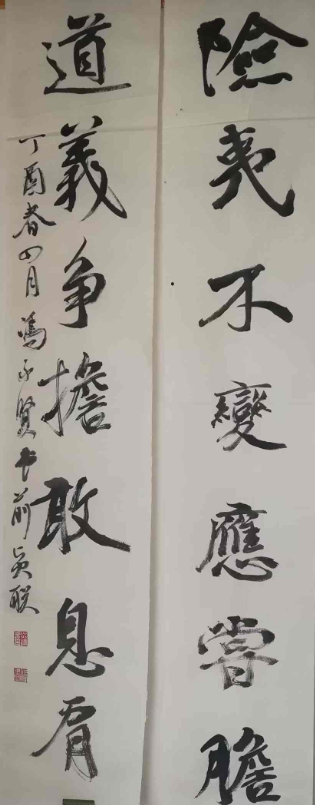 險夷不變應嘗膽
道義争擔敢息肩
丁酉春四月馮子賢書前吴联